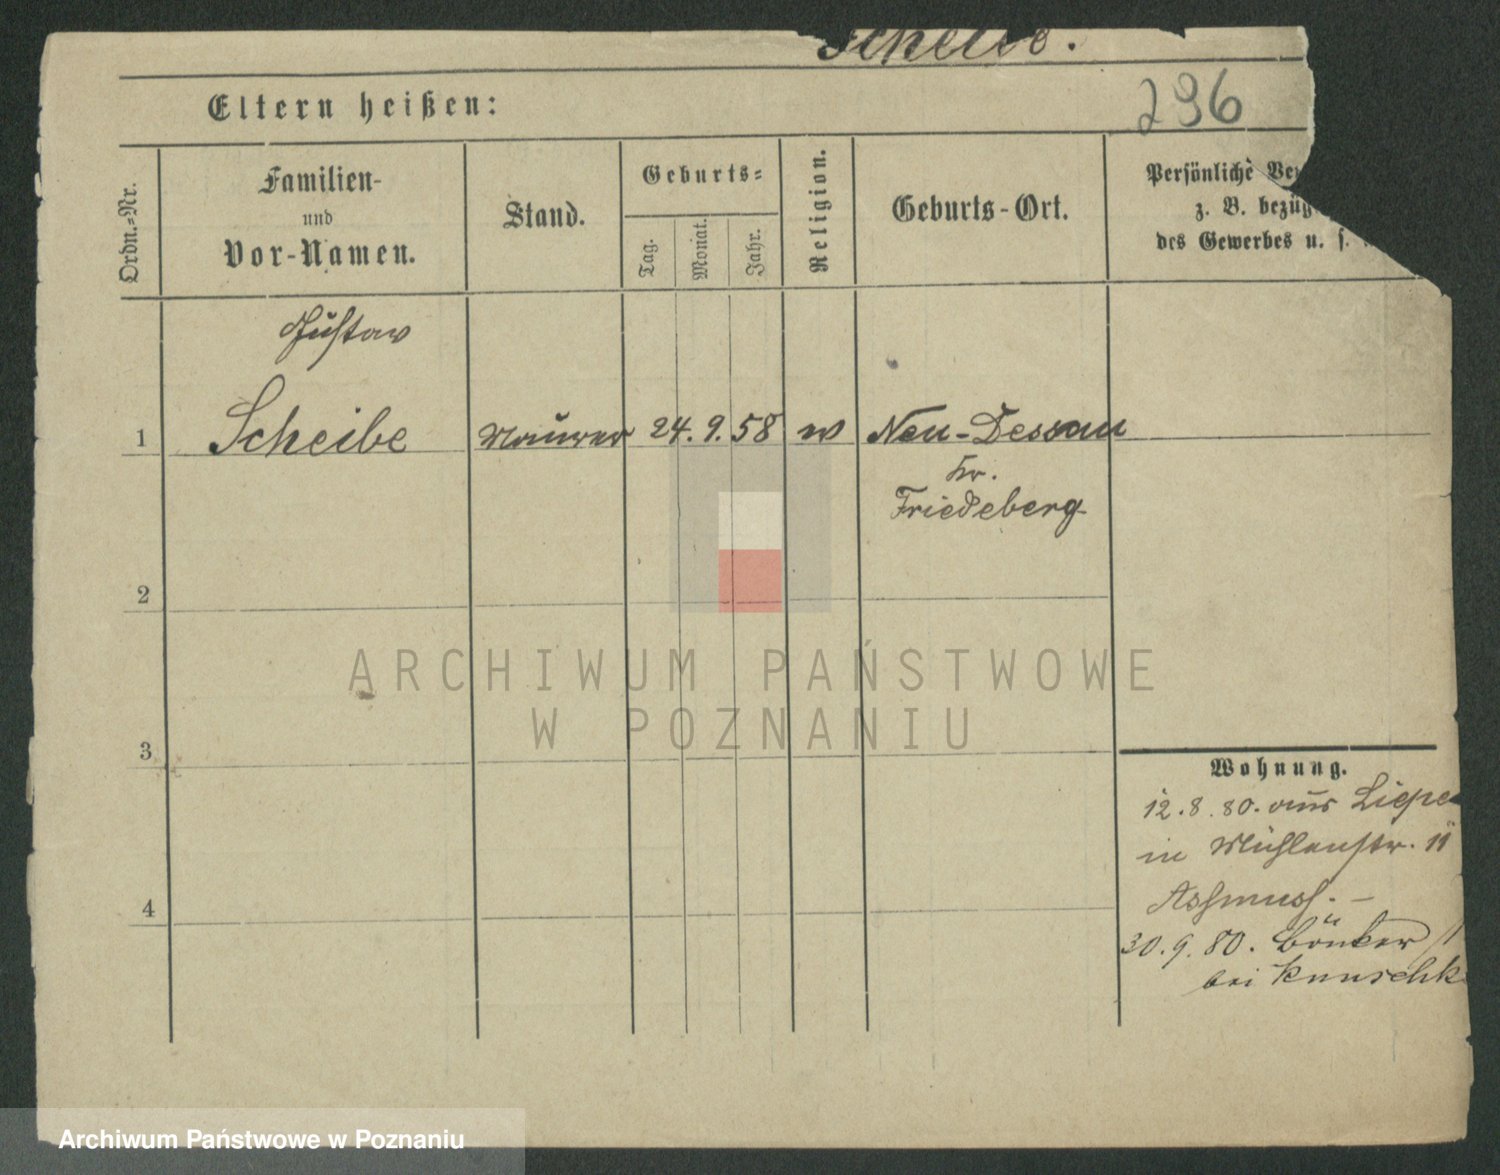 Scheibe.
Eltern heißen:
296
Ordn.-Nr.
Familien-
und
Vor-Namen.
Stand.
Geburts-
Tag.
Monat.
Jahr.
Religion.
Geburts-Ort.
Persönliche
z. B.
des Gewerbes u. s.
Gustav
1 Scheibe Maurer 24. 9. 58 Neu-Dessau
Kr.
Friedeberg
2
3
4
Wohnung.
12. 8. 80. aus
in Mühlenstr. 11
30. 9. 80.
bei
ARCHIWUM PAŃSTWOWE
W POZNANIU
Archiwum Państwowe w Poznaniu